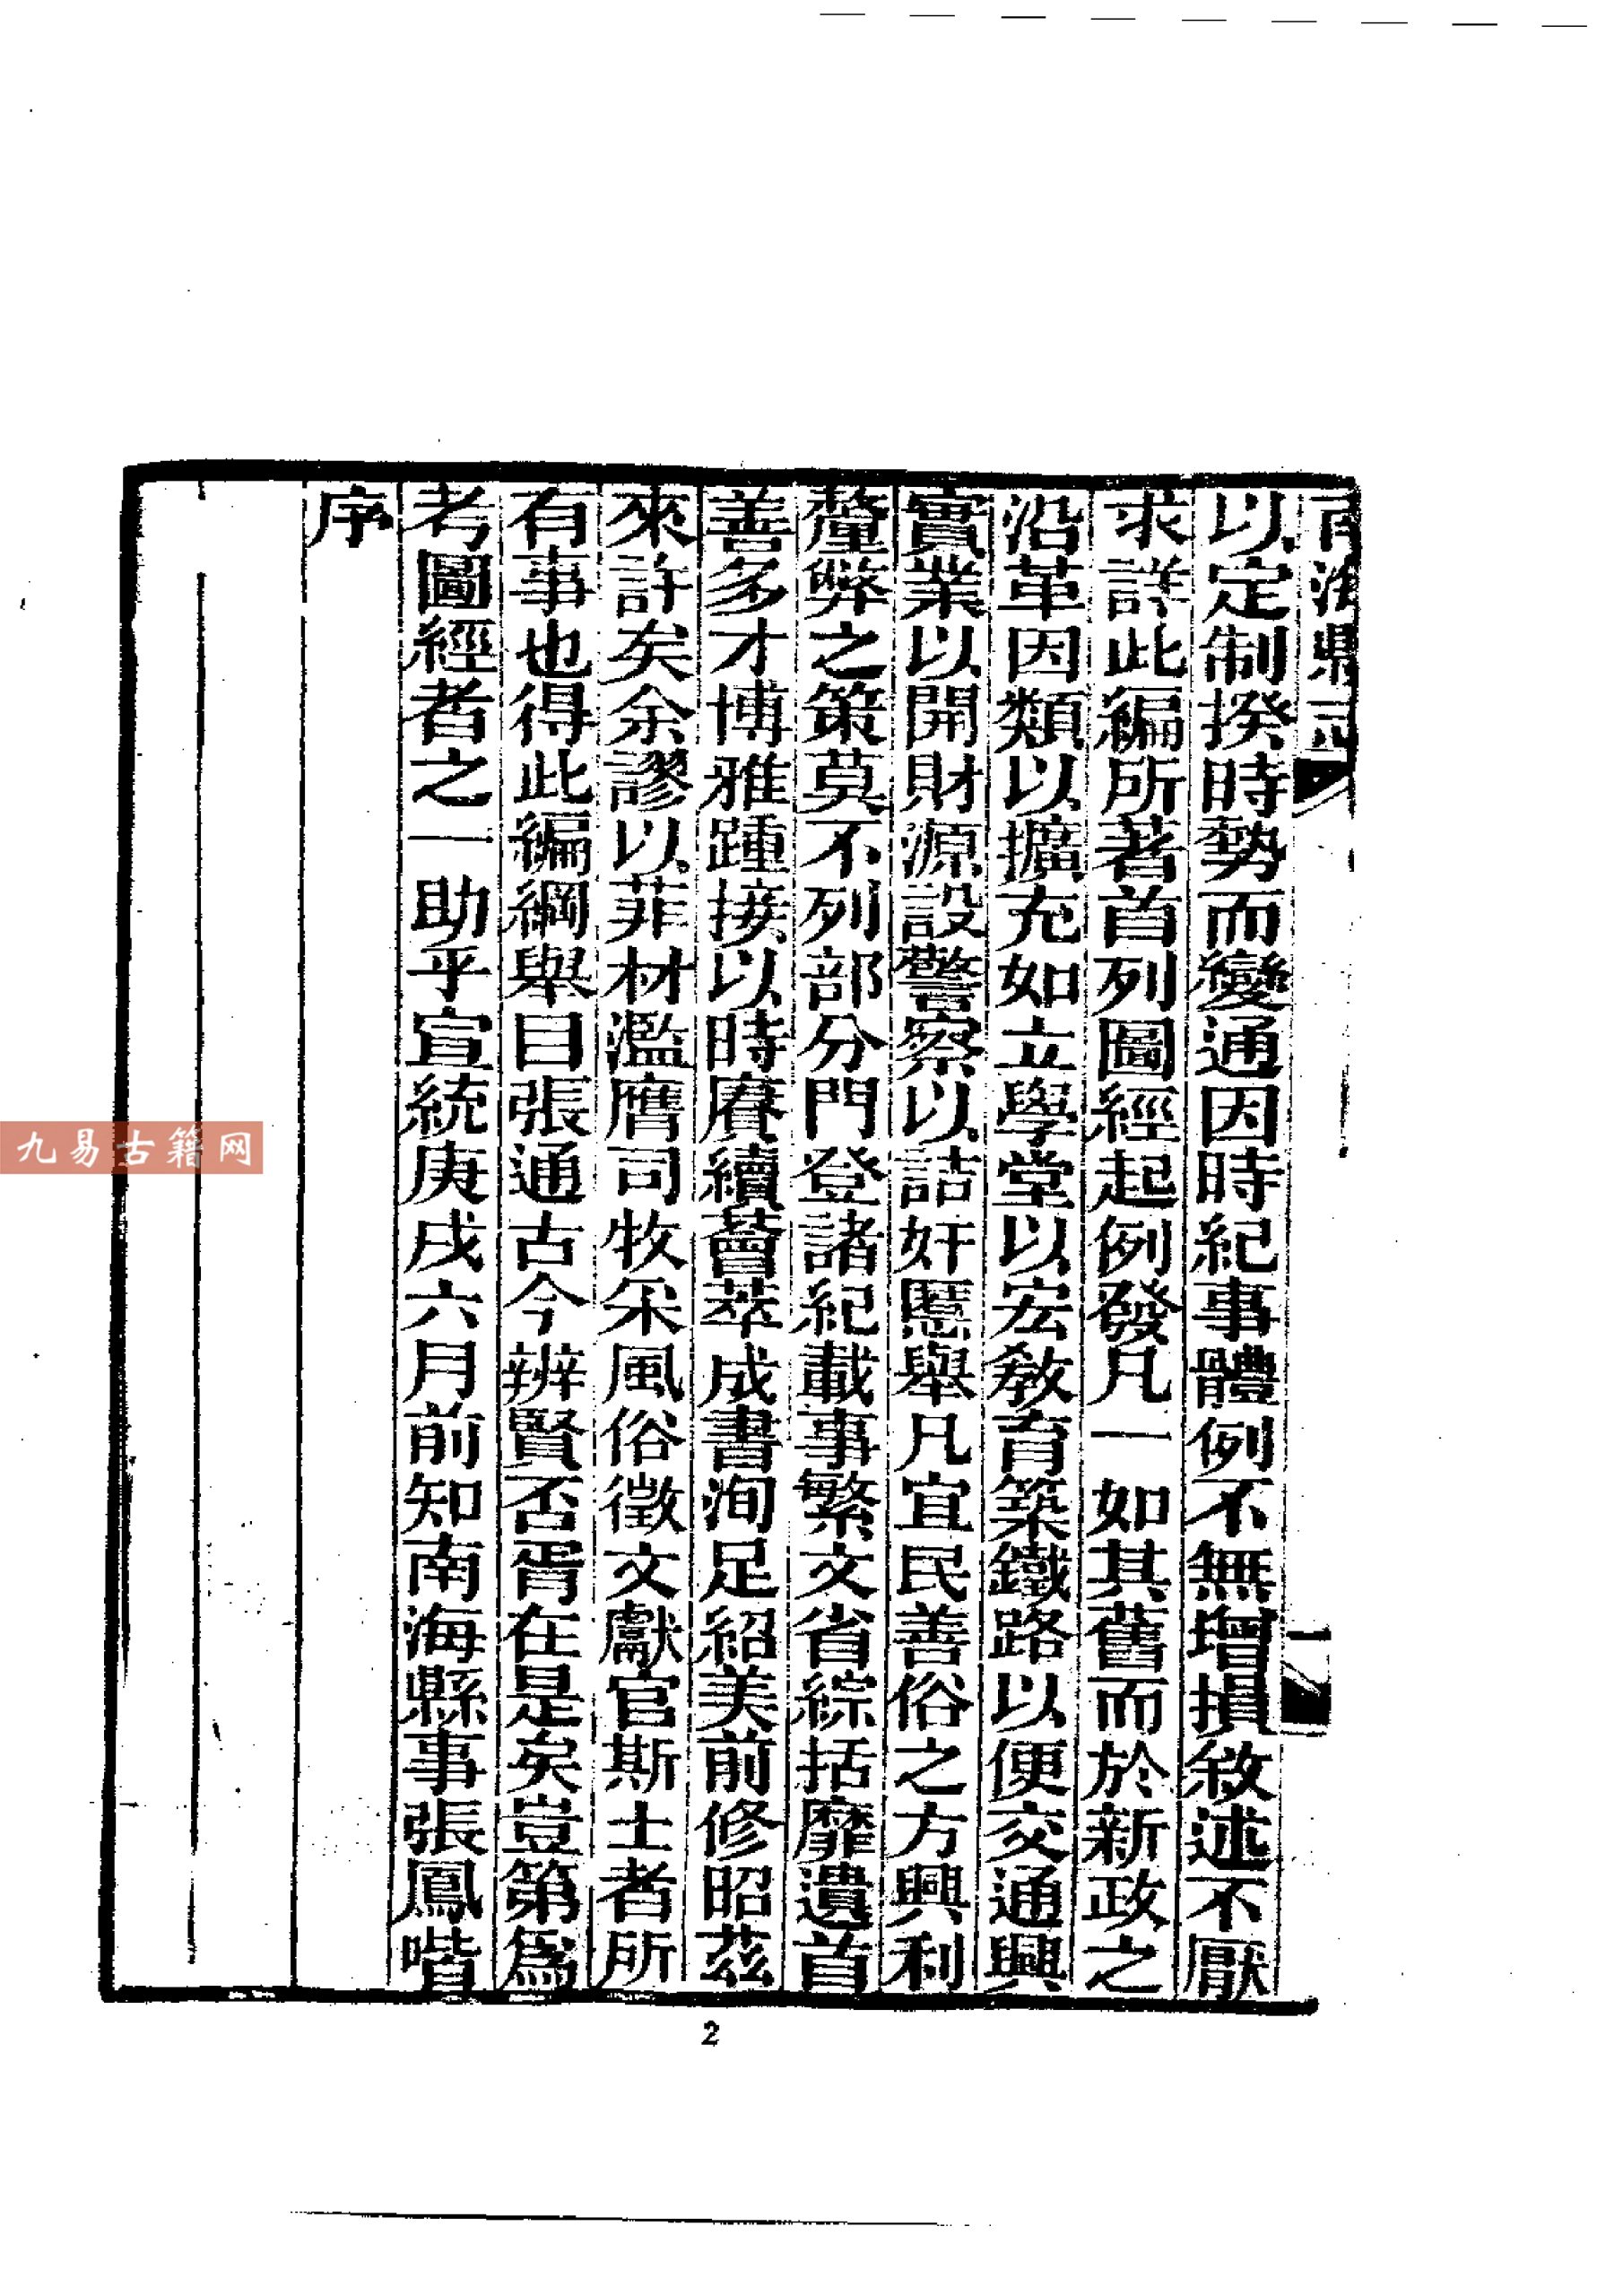 南海縣志
以定制揆時勢而變通因時紀事體例不無增損敘述不厭
求詳此編所著首列圖經起例發凡一如其舊而於新政之
沿革因類以擴充如立學堂以宏教育築鐵路以便交通興
實業以開財源設警察以詰奸慝舉凡宜民善俗之方興利
釐弊之策莫不列部分門登諸紀載事繁文省綜括靡遺首
善多才博雅踵接以時賡續薈萃成書洵足紹美前修昭茲
來許矣余謬以菲材濫膺司牧采風俗徵文獻官斯土者所
有事也得此編綱舉目張通古今辨賢否胥在是矣豈第爲
考圖經者之一助乎宣統庚戌六月前知南海縣事張鳳喈
序
一
2
九易古籍网